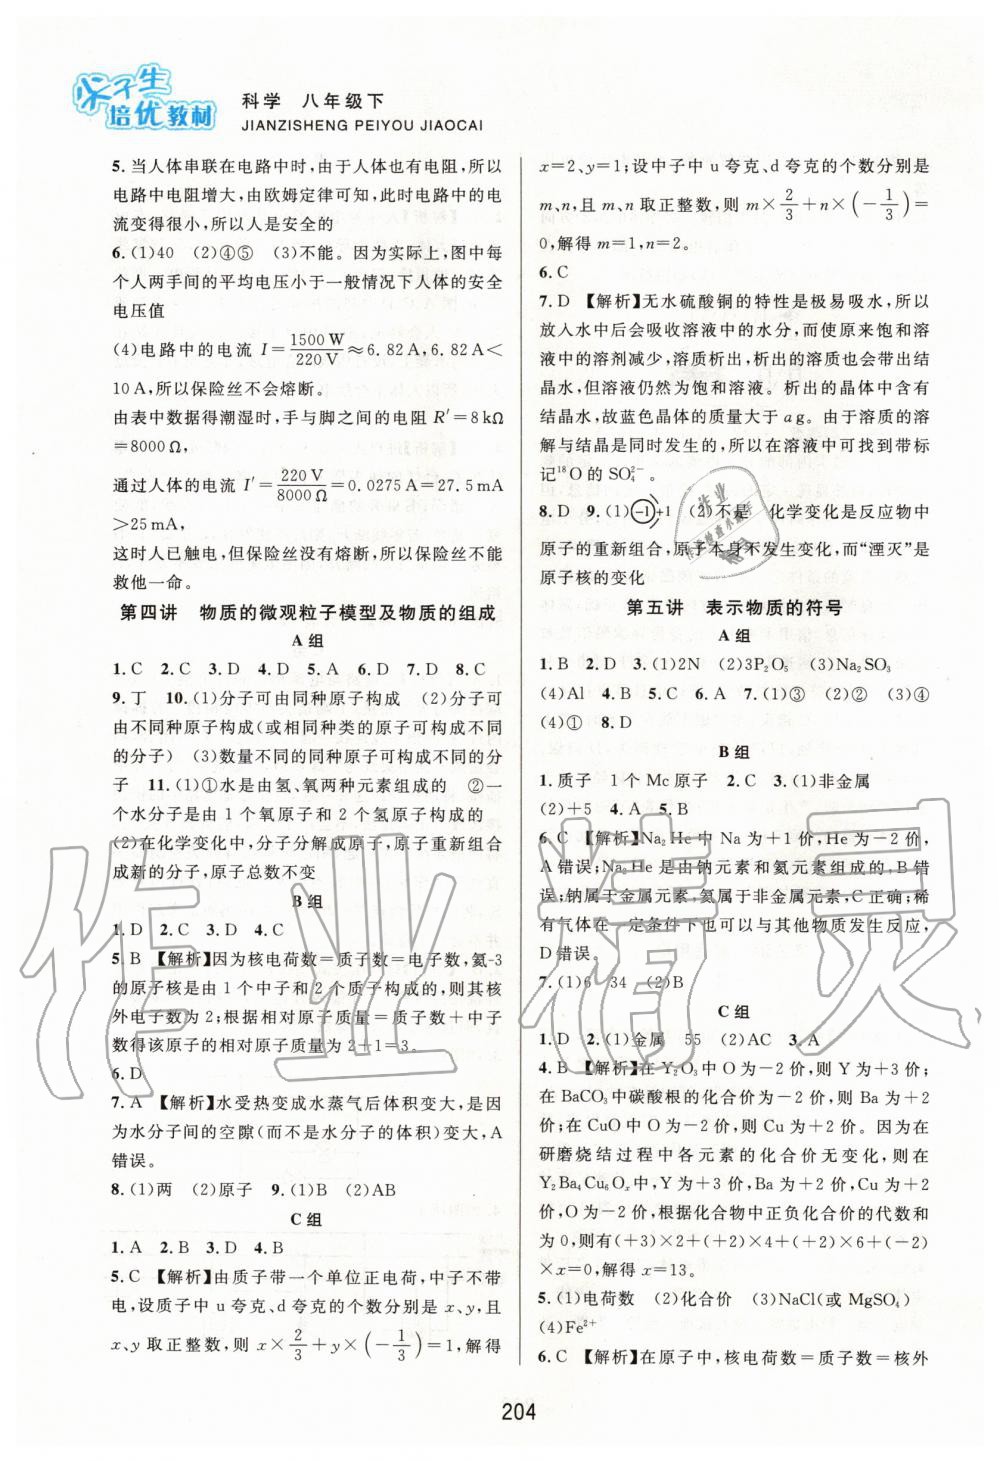 尖子生
培优教材
科学 八年级下
JIANZISHENG PEIYOU JIAOCAI
5. 当人体串联在电路中时,由于人体也有电阻,所以
电路中电阻增大,由欧姆定律可知,此时电路中的电
流变得很小,所以人是安全的
6. (1)40 (2)④⑤ (3)不能。因为实际上,图中每
个人两手间的平均电压小于一般情况下人体的安全
电压值
(4)电路中的电流 I=1500 W/220 V≈6.82 A,6.82 A<
10 A,所以保险丝不会熔断。
由表中数据得潮湿时,手与脚之间的电阻 R′=8 kΩ
=8000 Ω,
通过人体的电流 I′=220 V/8000 Ω=0.0275 A=27.5 mA
>25 mA,
这时人已触电,但保险丝没有熔断,所以保险丝不能
救他一命。
第四讲 物质的微观粒子模型及物质的组成
A 组
1. C 2. C 3. D 4. D 5. A 6. D 7. D 8. C
9. 丁 10. (1)分子可由同种原子构成 (2)分子可
由不同种原子构成(或相同种类的原子可构成不同
的分子) (3)数量不同的同种原子可构成不同的分
子 11. (1)①水是由氢、氧两种元素组成的 ②一
个水分子是由 1 个氧原子和 2 个氢原子构成的
(2)在化学变化中,分子分解成原子,原子重新组合
成新的分子,原子总数不变
B 组
1. D 2. C 3. D 4. C
5. B 【解析】因为核电荷数=质子数=电子数,氦-3
的原子核是由 1 个中子和 2 个质子构成的,则其核
外电子数为 2;根据相对原子质量=质子数+中子
数得该原子的相对原子质量为 2+1=3。
6. D
7. A 【解析】水受热变成水蒸气后体积变大,是因
为水分子间的空隙(而不是水分子的体积)变大,A
错误。
8. (1)两 (2)原子 9. (1)B (2)AB
C 组
1. A 2. B 3. D 4. B
5. C 【解析】由质子带一个单位正电荷,中子不带
电,设质子中 u 夸克、d 夸克的个数分别是 x、y,且
x、y 取正整数,则 x×2/3+y×(-1/3)=1,解得
x=2、y=1;设中子中 u 夸克、d 夸克的个数分别是
m、n,且 m、n 取正整数,则 m×2/3+n×(-1/3)=
0,解得 m=1,n=2。
6. C
7. D 【解析】无水硫酸铜的特性是极易吸水,所以
放入水中后会吸收溶液中的水分,而使原来饱和溶
液中的溶剂减少,溶质析出,析出的溶质也会带出结
晶水,但溶液仍然为饱和溶液。析出的晶体中含有
结晶水,故蓝色晶体的质量大于 a g。由于溶质的溶
解与结晶是同时发生的,所以在溶液中可找到带标
记¹⁸O 的 SO₄²⁻
8. D 9. (1)-1 +1 (2)不是 化学变化是反应物中
原子的重新组合,原子本身不发生变化,而“湮灭”是
原子核的变化
第五讲 表示物质的符号
A 组
1. B 2. D 3. (1)2N (2)3P₂O₅ (3)Na₂SO₃
(4)Al 4. B 5. C 6. A 7. (1)③ (2)② (3)④
(4)① 8. D
B 组
1. 质子 1 个 Mc 原子 2. C 3. (1)非金属
(2)+5 4. A 5. B
6. C 【解析】Na₂He 中 Na 为+1 价,He 为-2 价,
A 错误;Na₂He 是由钠元素和氦元素组成的,B 错
误;钠属于金属元素,氦属于非金属元素,C 正确;稀
有气体在一定条件下也可以与其他物质发生反应,
D 错误。
7. (1)6 34 (2)B
C 组
1. D 2. (1)金属 55 (2)AC 3. A
4. B 【解析】在 Y₂O₃ 中 O 为-2 价,Y 为+3 价;
在 BaCO₃ 中碳酸根的化合价为-2 价,Ba 为+2
价;在 CuO 中 O 为-2 价,则 Cu 为+2 价。因为在
研磨烧结过程中各元素的化合价无变化,则在
Y₂Ba₄Cu₆Oₓ 中,Y 为+3 价,Ba 为+2 价,Cu 为+2
价,O 为-2 价,根据化合物中正负化合价的代数和
为 0,则有(+3)×2+(+2)×4+(+2)×6+(-2)
×x=0,解得 x=13。
5. (1)电荷数 (2)化合价 (3)NaCl(或 MgSO₄)
(4)Fe²⁺
6. C 【解析】在原子中,核电荷数=质子数=核外
204
作业精灵